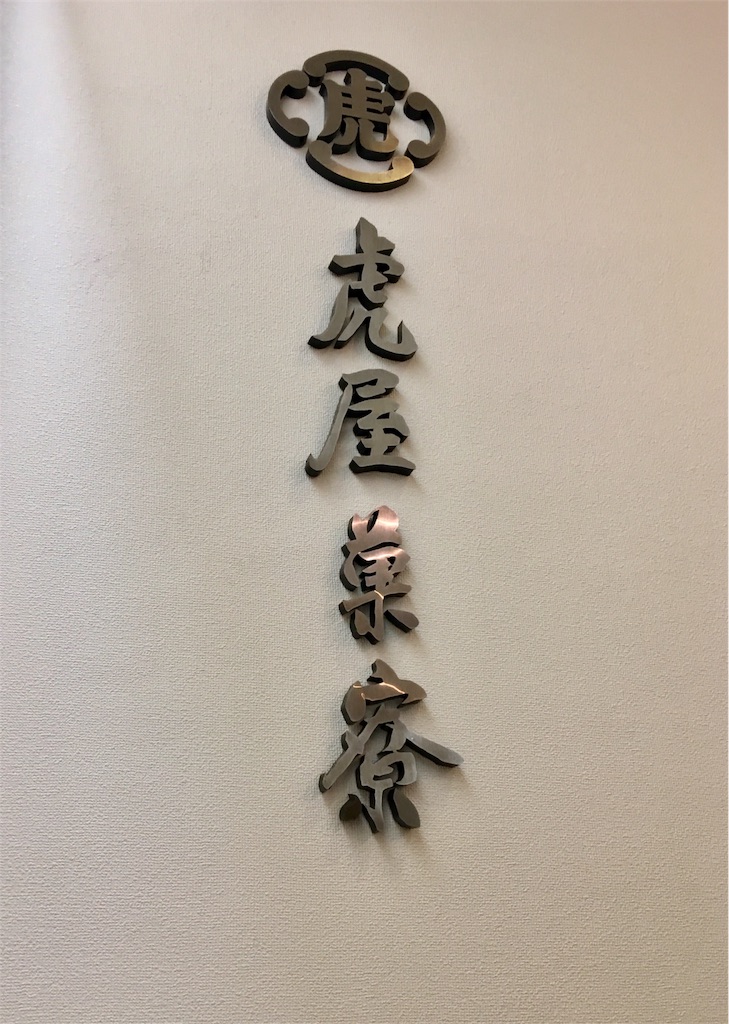 虎
虎屋菓寮